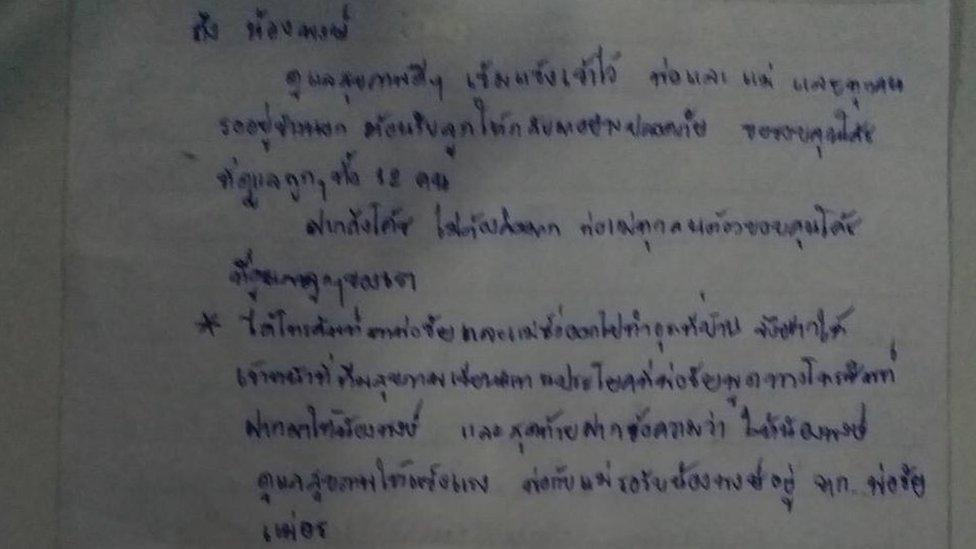 ถึง น้องพงษ์
ดูแลสุขภาพดีๆ เข้มแข็งเข้าไว้ พ่อและ แม่ และทุกคน
รออยู่ข้างนอก ต้อนรับลูกให้กลับมาอย่างปลอดภัย ขอขอบคุณโค้ช
ที่ดูแลลูกๆ ทั้ง 12 คน
ฝากถึงโค้ช ไม่ต้องคิดมาก พ่อแม่ทุกคนต้องขอบคุณโค้ช
ที่ดูแลลูกๆของเรา
* ได้โทรศัพท์หาพ่อชัย และแม่ซึ่งออกไปทำธุระที่บ้าน จึงฝากให้
เจ้าหน้าที่ทีมสุขภาพเขียนแทน ประโยคที่พ่อชัยพูดทางโทรศัพท์
ฝากมาให้น้องพงษ์ และสุดท้ายฝากข้อความว่า ให้น้องพงษ์
ดูแลสุขภาพให้แข็งแรง พ่อกับแม่รอรับน้องพงษ์อยู่ จาก พ่อชัย
แม่อร